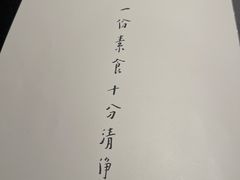 一份素食十分清净